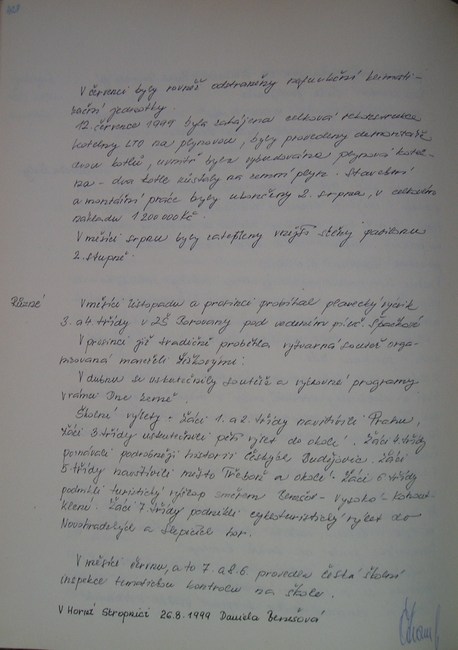 V červenci byly rovněž odstraněny nejzávažnější
jednotky.
12. července 1999 byla zahájena celková rekonstrukce
kotelny LTO na plynovou, byly provedeny demontáže
dvou kotlů, uvnitř byla vybudována plynová kotel-
na - dva kotle zůstaly na zemní plyn. Stavební
a montážní práce byly ukončeny 2. srpna, v celkovém
nákladu 1 200 000 Kč.
V měsíci srpnu byly zatepleny vnější stěny pavilonu
2. stupně.
Různé
V měsíci listopadu a prosinci probíhal plavecký výcvik
3. a 4. třídy v ZŠ Borovany pod vedením
V prosinci již tradičně proběhla výtvarná soutěž orga-
nizovaná manželi Žižkovými.
V dubnu se uskutečnily soutěže a výchovné programy
v rámci Dne země.
Školní výlety - žáci 1. a 2. třídy navštívili Prahu,
žáci 3. třídy uskutečnili pěší výlet do okolí. Žáci 4. třídy
poznávali podrobněji historii Českých Budějovic. Žáci
5. třídy navštívili město Třeboň a okolí. Žáci 6. třídy
podnikli turistický výšlap směrem Benešov -
Žáci 7. třídy podnikli cykloturistický výlet do
Novohradských a Slepičích hor.
V měsíci červnu, a to 7. a 8. 6. provedena česká školní
inspekce tematickou kontrolu na škole.
V Horní Stropnici 26.8.1999 Daniela Benešová